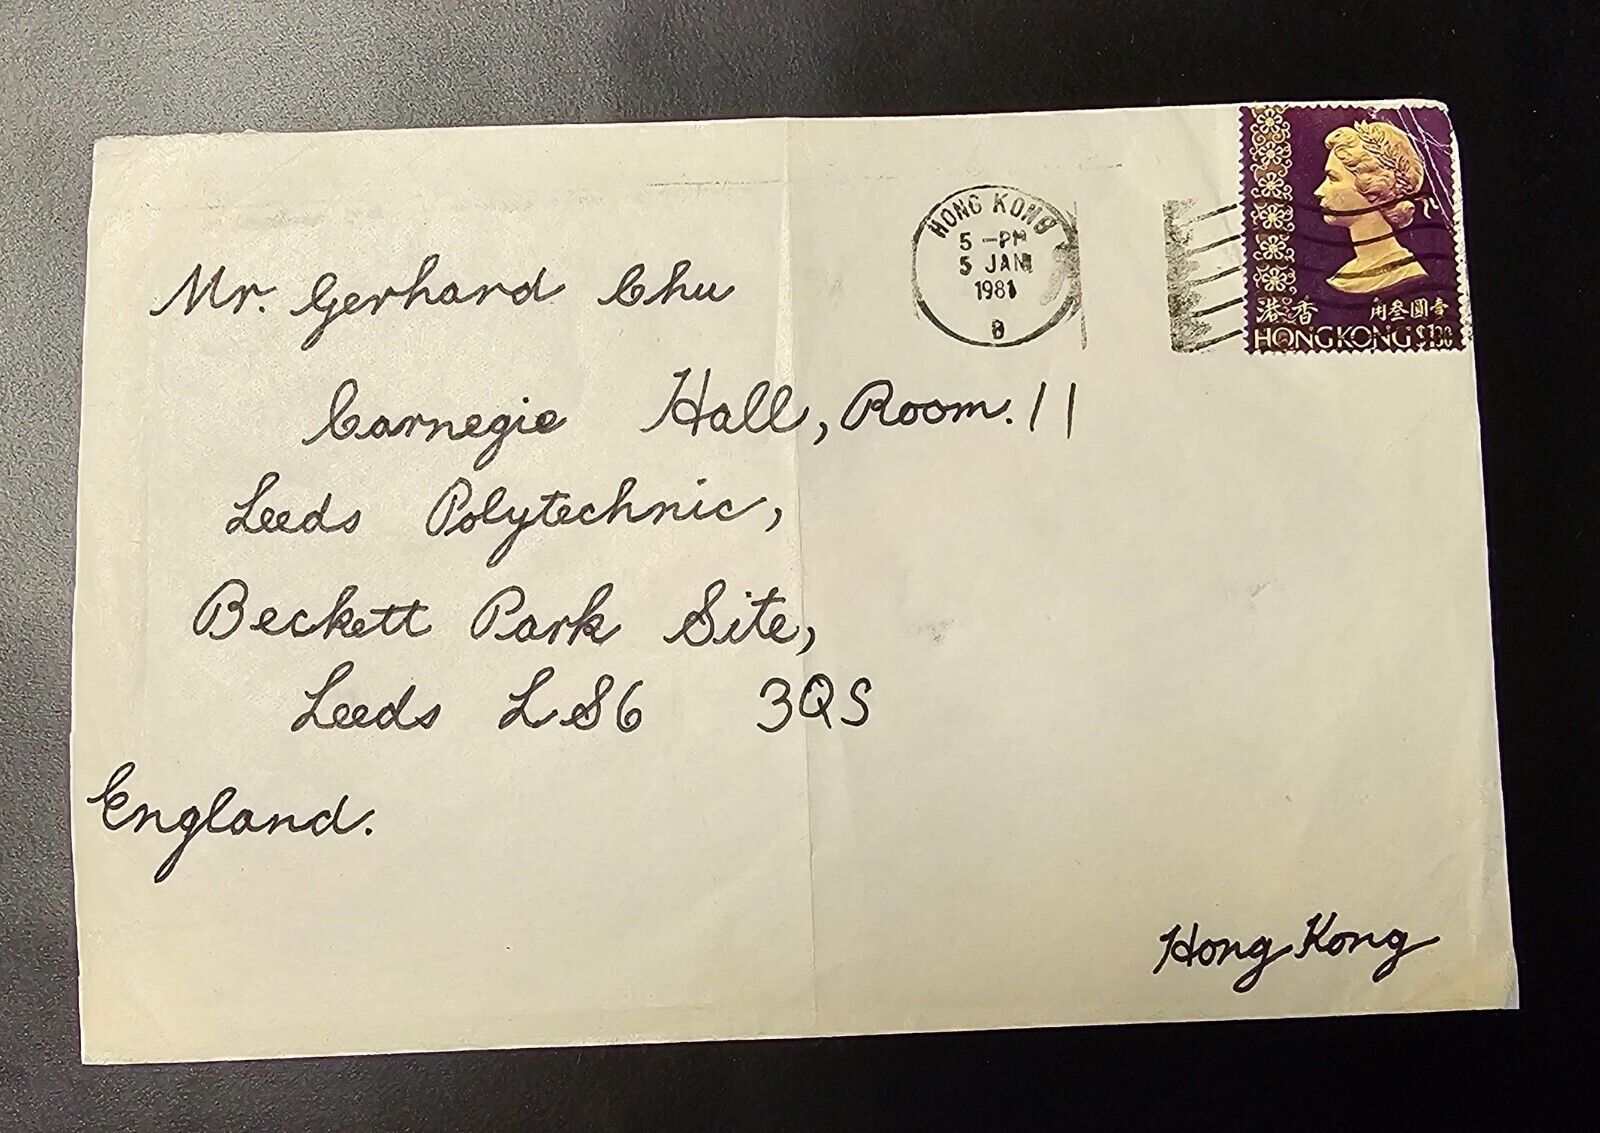 HONG KONG
5 -PM
5 JAN
1981
8
港香 角叁圓壹
HONG KONG $1.30
Mr. Gerhard Chu
Carnegie Hall, Room. 11
Leeds Polytechnic,
Beckett Park Site,
Leeds LS6 3QS
England.
Hong Kong